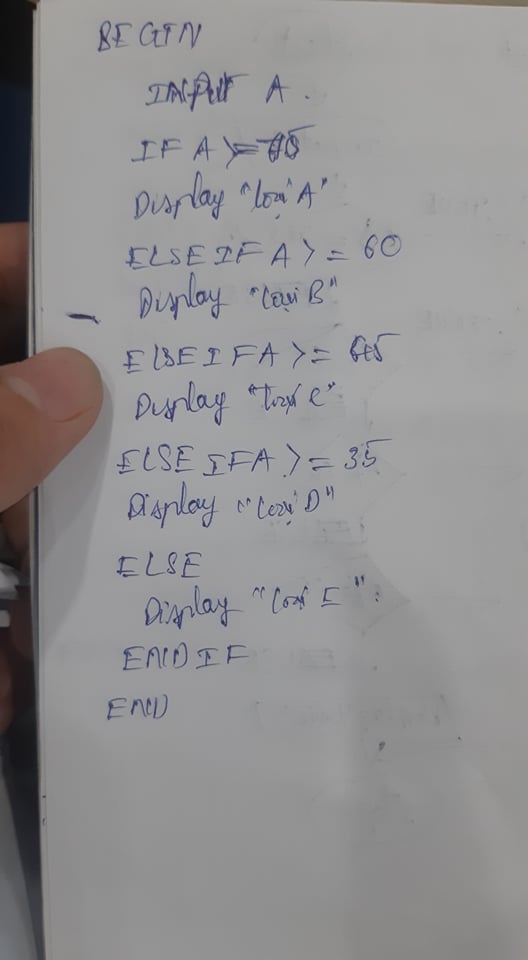 BEGIN
INPUT A.
IF A >= 75
Display "loại A"
ELSE IF A >= 60
Display "loại B"
ELSE IF A >= 45
Display "loại C"
ELSE IF A >= 35
Display "loại D"
ELSE
Display "loại E".
END IF
END